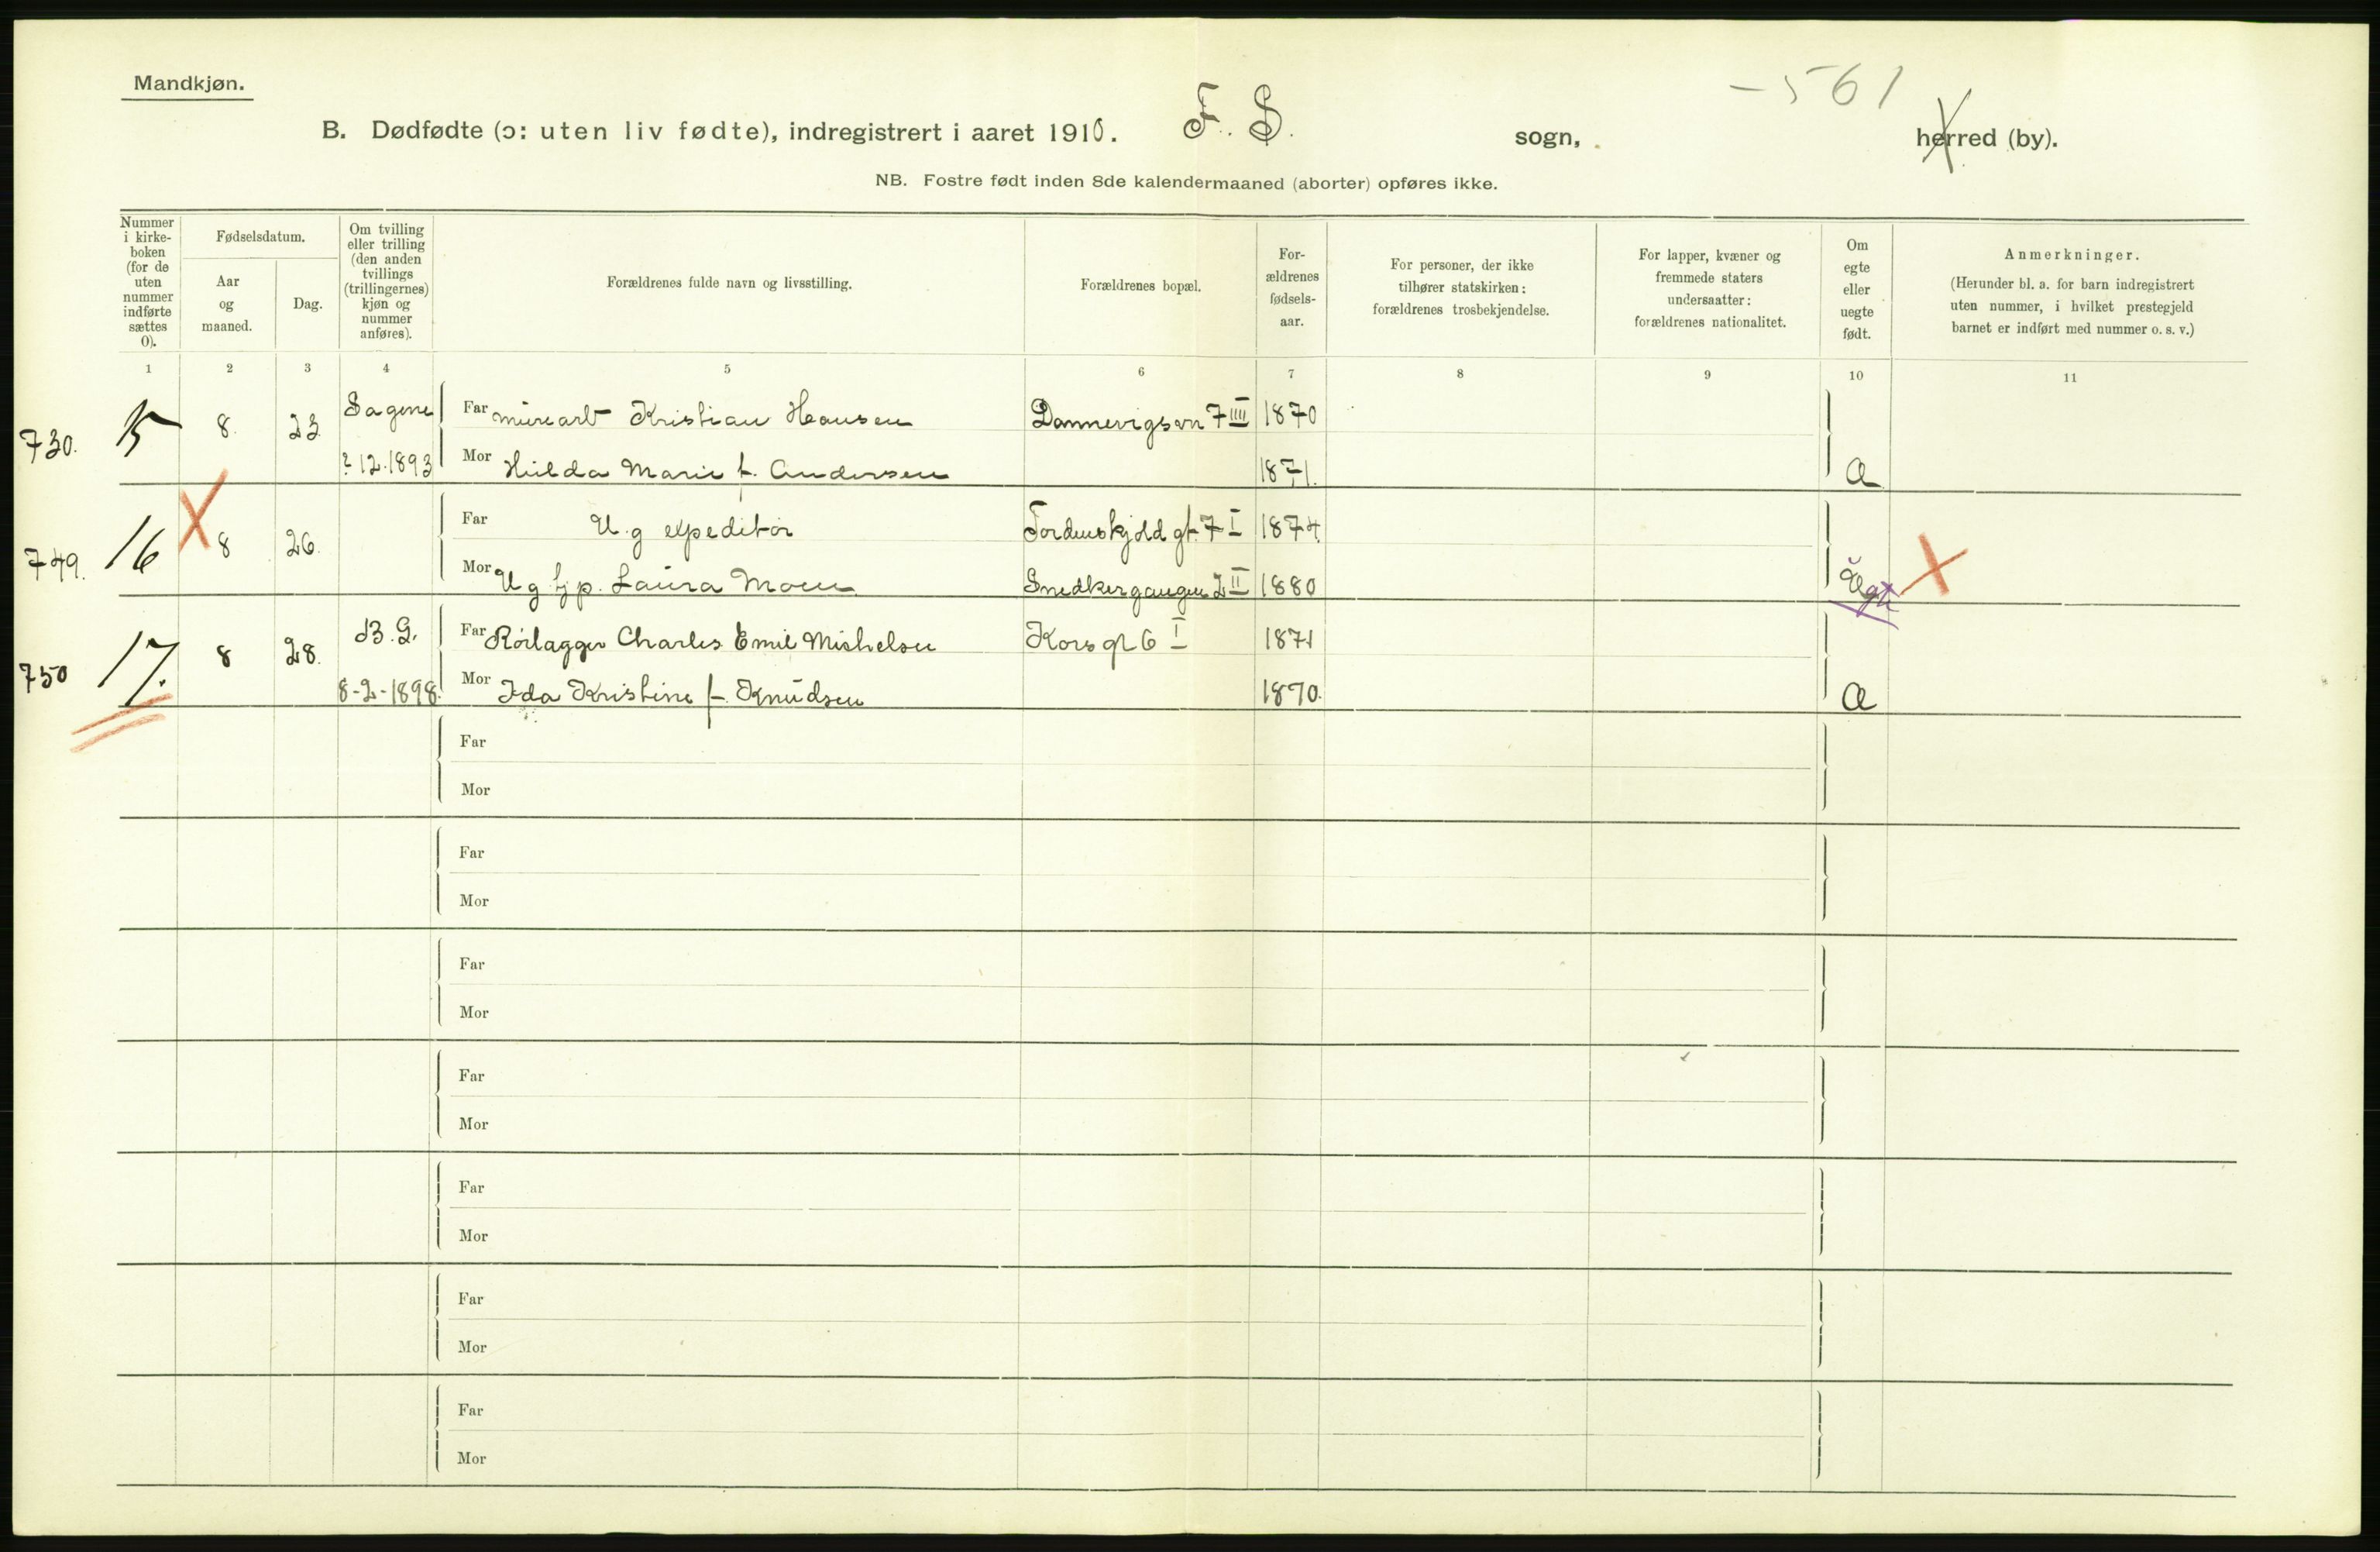 Mandkjøn.
-561
B. Dødfødte (ɔ: uten liv fødte), indregistrert i aaret 1910. F. S. sogn, herred (by).
NB. Fostre født inden 8de kalendermaaned (aborter) opføres ikke.
Nummer i kirke-boken (for de uten nummer indførte sættes 0).
Fødselsdatum.
Aar og maaned.
Dag.
Om tvilling eller trilling (den anden tvillings (trillingernes) kjøn og nummer anføres).
Forældrenes fulde navn og livsstilling.
Forældrenes bopæl.
For-ældrenes fødsels-aar.
For personer, der ikke tilhører statskirken: forældrenes trosbekjendelse.
For lapper, kvæner og fremmede staters undersaatter: forældrenes nationalitet.
Om egte eller uegte født.
Anmerkninger.
(Herunder bl. a. for barn indregistrert uten nummer, i hvilket prestegjeld barnet er indført med nummer o. s. v.)
1 2 3 4 5 6 7 8 9 10 11
730. 15 8. 23 Sagene Far murarb Kristian Hansen Dannevigsvn 7 IIII 1870
? 12.1893 Mor Hilda Marie f. Andersen 1871. Æ
749. 16 8 26. Far U.g expeditør Tordenskjold gt. 7 I 1874.
Mor U g tjp. Laura Moen Snedkergangen 2 II 1880 Uegte
750 17. 8 28. B.G. Far Rørlægger Charles Emil Michelsen Kors gt 6 I 1871
8-2-1898. Mor Ida Kristine f. Knudsen 1870. Æ
Far
Mor
Far
Mor
Far
Mor
Far
Mor
Far
Mor
Far
Mor
Far
Mor